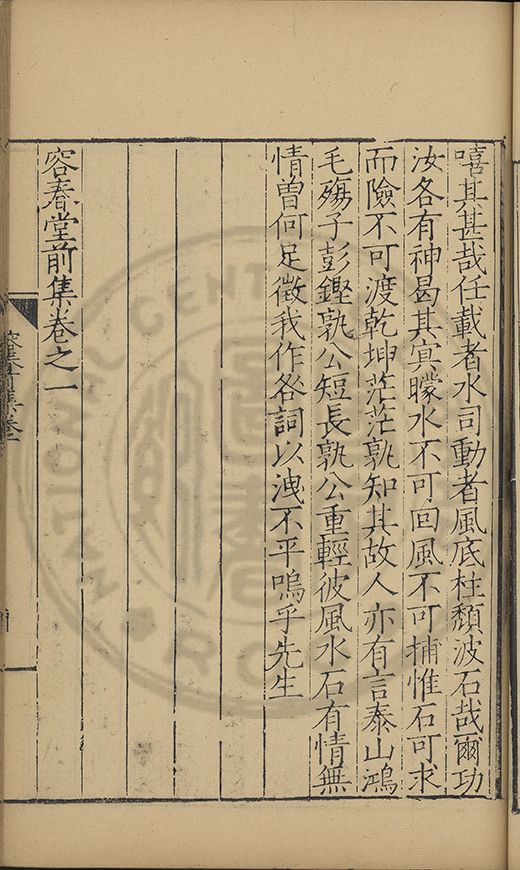 嘻其甚哉任載者水司動者風底柱頽波石哉爾功
汝各有神曷其冥矇水不可回風不可捕惟石可求
而險不可渡乾坤茫茫孰知其故人亦有言泰山鴻
毛殤子彭鏗孰公短長孰公重輕彼風水石有情無
情曾何足徵我作咎詞以洩不平嗚乎先生
容春堂前集卷之一